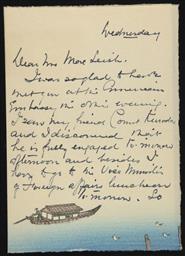 Wednesday
Dear Mrs Move Leish.
I was so glad to have
met you at the American
Embassy the other evening.
I saw my friend Count
and I discovered that
he is fully engaged to-morrow
afternoon and besides I
have to go to the Vice Minister
of Foreign affairs luncheon
to-morrow. So